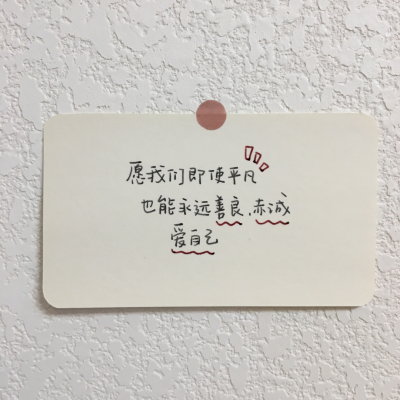 愿我们即使平凡
也能永远善良、赤诚
爱自己